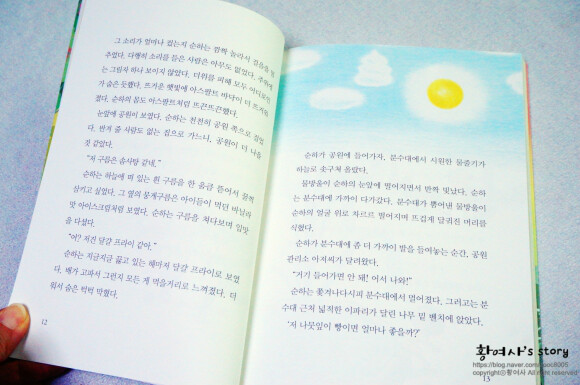 그 소리가 얼마나 컸는지 순하는 깜짝 놀라서 걸음을 멈
추었다. 다행히 소리를 들은 사람은 아무도 없었다. 주위에
는 그림자 하나 보이지 않았다. 더위를 피해 모두 어디로
가 숨은 듯했다. 뜨거운 햇볕에 아스팔트 바닥이 더 뜨거워
졌다. 순하의 몸도 아스팔트처럼 뜨끈뜨끈했다.
눈앞에 공원이 보였다. 순하는 천천히 공원 쪽으로 걸었
다. 반겨 줄 사람도 없는 집으로 가느니, 공원이 더 나을
것 같았다.
“저 구름은 솜사탕 같네.”
순하는 하늘에 떠 있는 흰 구름을 한 움큼 뜯어서 꿀꺽
삼키고 싶었다. 그 옆의 뭉게구름은 아이들이 먹던 바닐라
맛 아이스크림처럼 보였다. 순하는 구름을 쳐다보며 입맛
을 다셨다.
“어? 저건 달걀 프라이 같아.”
순하는 지글지글 끓고 있는 해마저 달걀 프라이로 보였
다. 배가 고파서 그런지 모든 게 먹을거리로 느껴졌다. 더
워서 숨은 턱턱 막혔다.
12
순하가 공원에 들어가자, 분수대에서 시원한 물줄기가
하늘로 솟구쳐 올랐다.
물방울이 순하의 눈앞에 떨어지면서 반짝 빛났다. 순하
는 분수대에 가까이 다가갔다. 분수대가 뿜어낸 물방울이
순하의 얼굴 위로 차르르 떨어지며 뜨겁게 달궈진 머리를
식혔다.
순하가 분수대에 좀 더 가까이 발을 들여놓는 순간, 공원
관리소 아저씨가 달려왔다.
“거기 들어가면 안 돼! 어서 나와!”
순하는 쫓겨나다시피 분수대에서 멀어졌다. 그러고는 분
수대 근처 넓적한 이파리가 달린 나무 밑 벤치에 앉았다.
‘저 나뭇잎이 빵이면 얼마나 좋을까?’
13
황여사's story
copyrightⓒ황여사 All right reserved